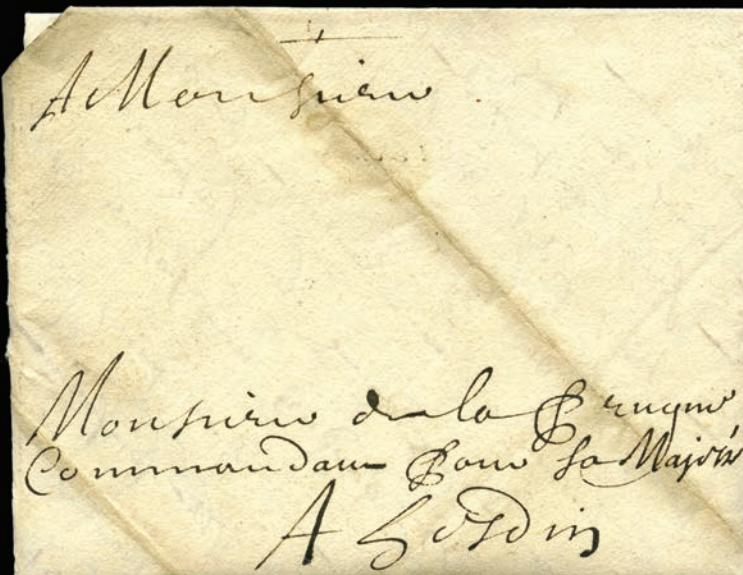 A Monsieur
Monsieur de la
Commandant Pour sa Majesté
A Hesdin